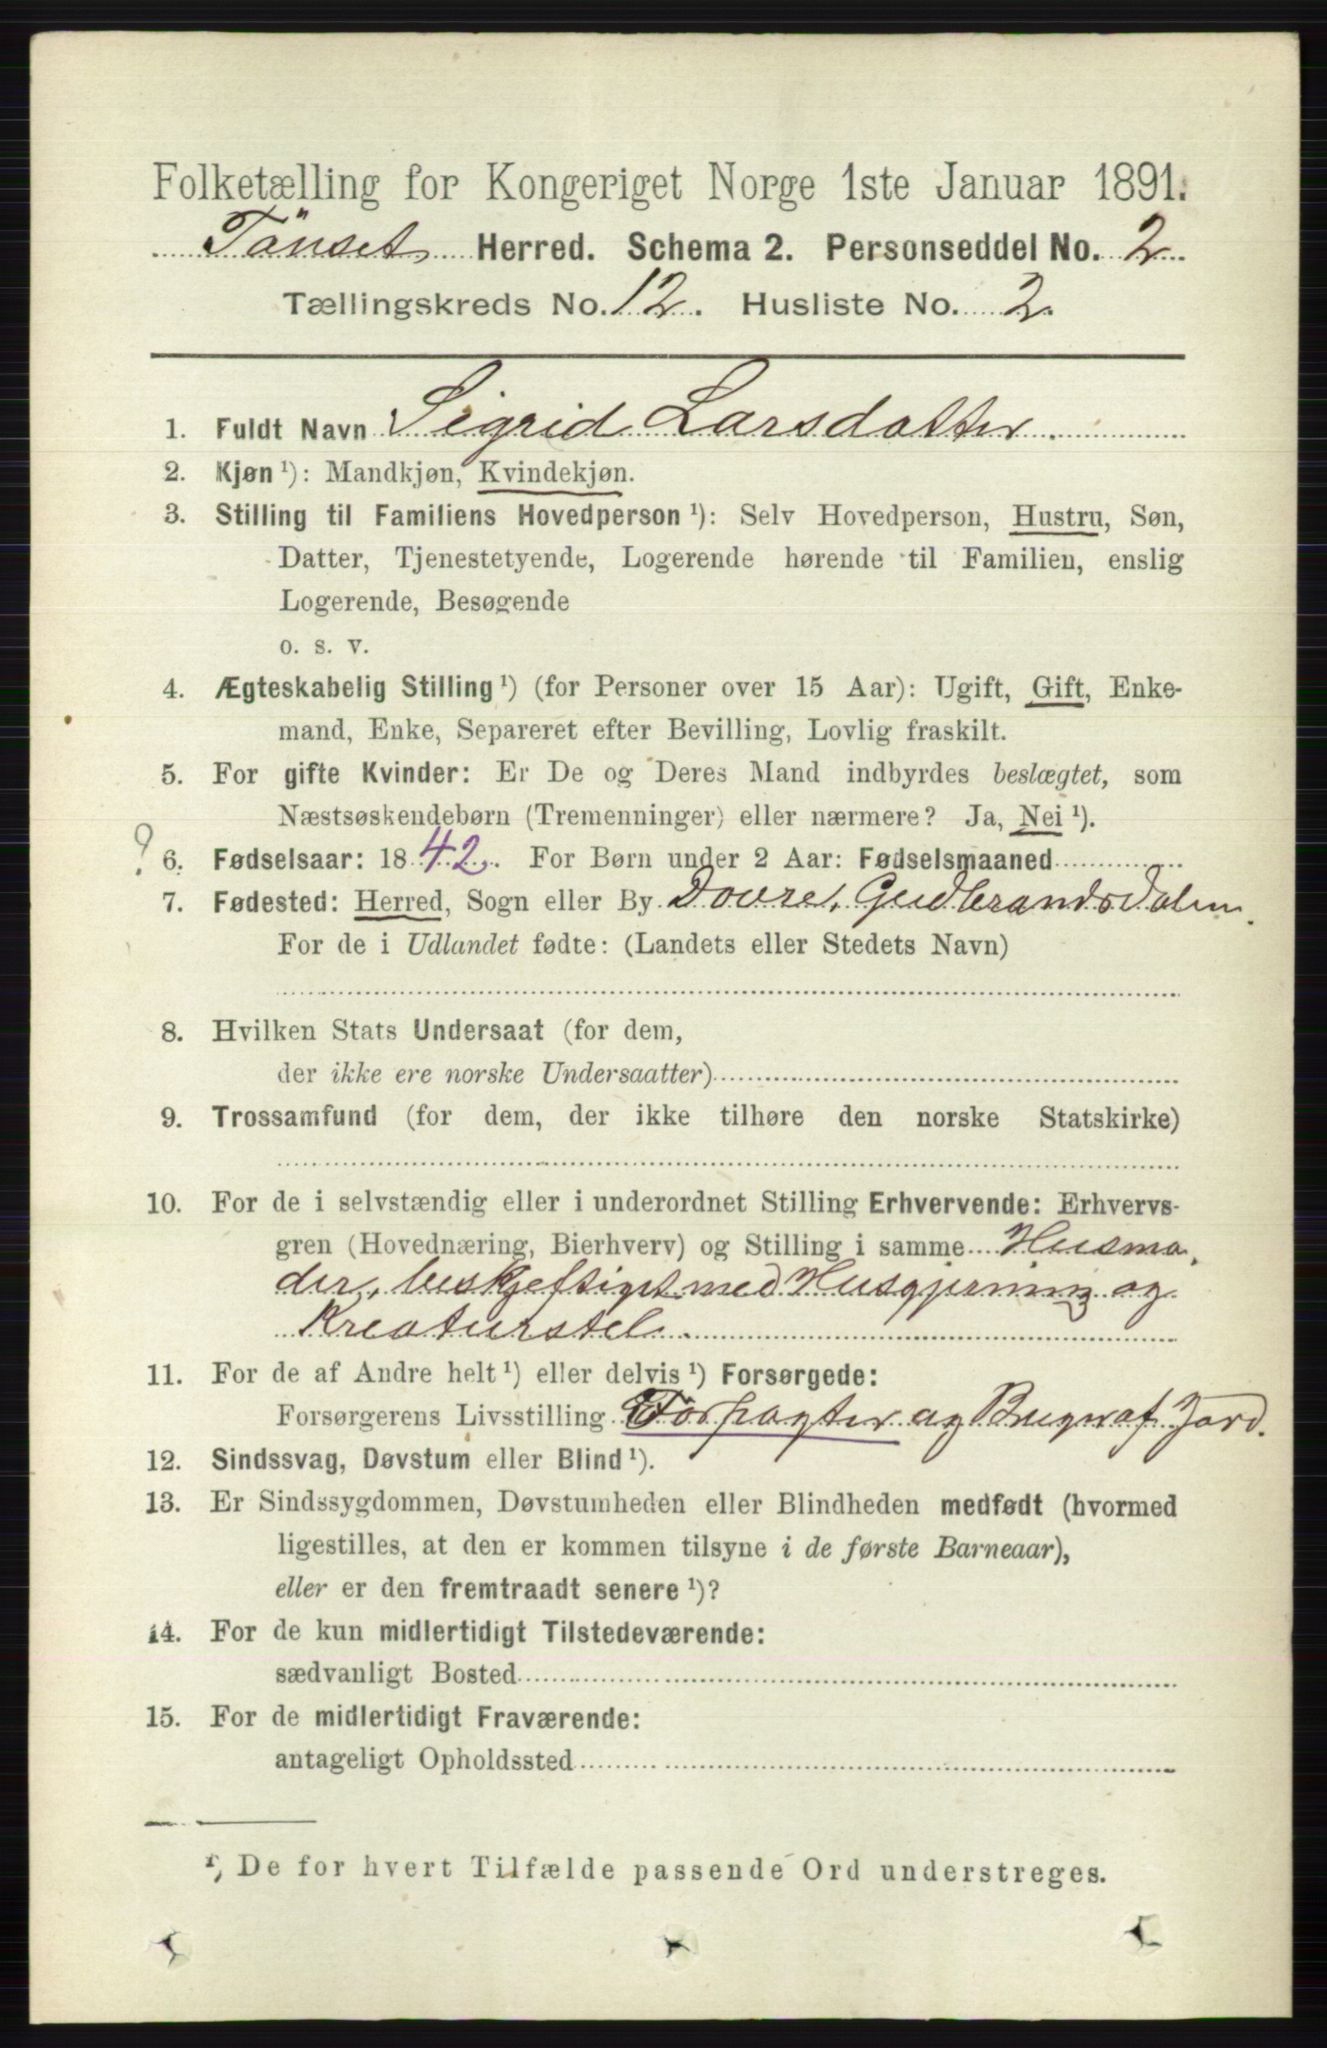 Folketælling for Kongeriget Norge 1ste Januar 1891.
Tönset Herred. Schema 2. Personseddel No. 2
Tællingskreds No. 12. Husliste No. 2.
1. Fuldt Navn Sigrid Larsdatter
2. Kjøn ¹): Mandkjøn, Kvindekjøn.
3. Stilling til Familiens Hovedperson ¹): Selv Hovedperson, Hustru, Søn,
Datter, Tjenestetyende, Logerende hørende til Familien, enslig
Logerende, Besøgende
o. s. v.
4. Ægteskabelig Stilling ¹) (for Personer over 15 Aar): Ugift, Gift, Enke-
mand, Enke, Separeret efter Bevilling, Lovlig fraskilt.
5. For gifte Kvinder: Er De og Deres Mand indbyrdes beslægtet, som
Næstsøskendebørn (Tremenninger) eller nærmere? Ja, Nei ¹).
? 6. Fødselsaar: 1842. For Børn under 2 Aar: Fødselsmaaned
7. Fødested: Herred, Sogn eller By Dovre, Gudbrandsdalen.
For de i Udlandet fødte: (Landets eller Stedets Navn)
8. Hvilken Stats Undersaat (for dem,
der ikke ere norske Undersaatter)
9. Trossamfund (for dem, der ikke tilhøre den norske Statskirke)
10. For de i selvstændig eller i underordnet Stilling Erhvervende: Erhvervs-
gren (Hovednæring, Bierhverv) og Stilling i samme Husmo-
der, beskjeftiget med Husgjerning og
Kreaturstel.
11. For de af Andre helt ¹) eller delvis ¹) Forsørgede:
Forsørgerens Livsstilling Forpagter og Bruger af Jord.
12. Sindssvag, Døvstum eller Blind ¹).
13. Er Sindssygdommen, Døvstumheden eller Blindheden medfødt (hvormed
ligestilles, at den er kommen tilsyne i de første Barneaar),
eller er den fremtraadt senere ¹)?
14. For de kun midlertidigt Tilstedeværende:
sædvanligt Bosted
15. For de midlertidigt Fraværende:
antageligt Opholdssted
¹) De for hvert Tilfælde passende Ord understreges.